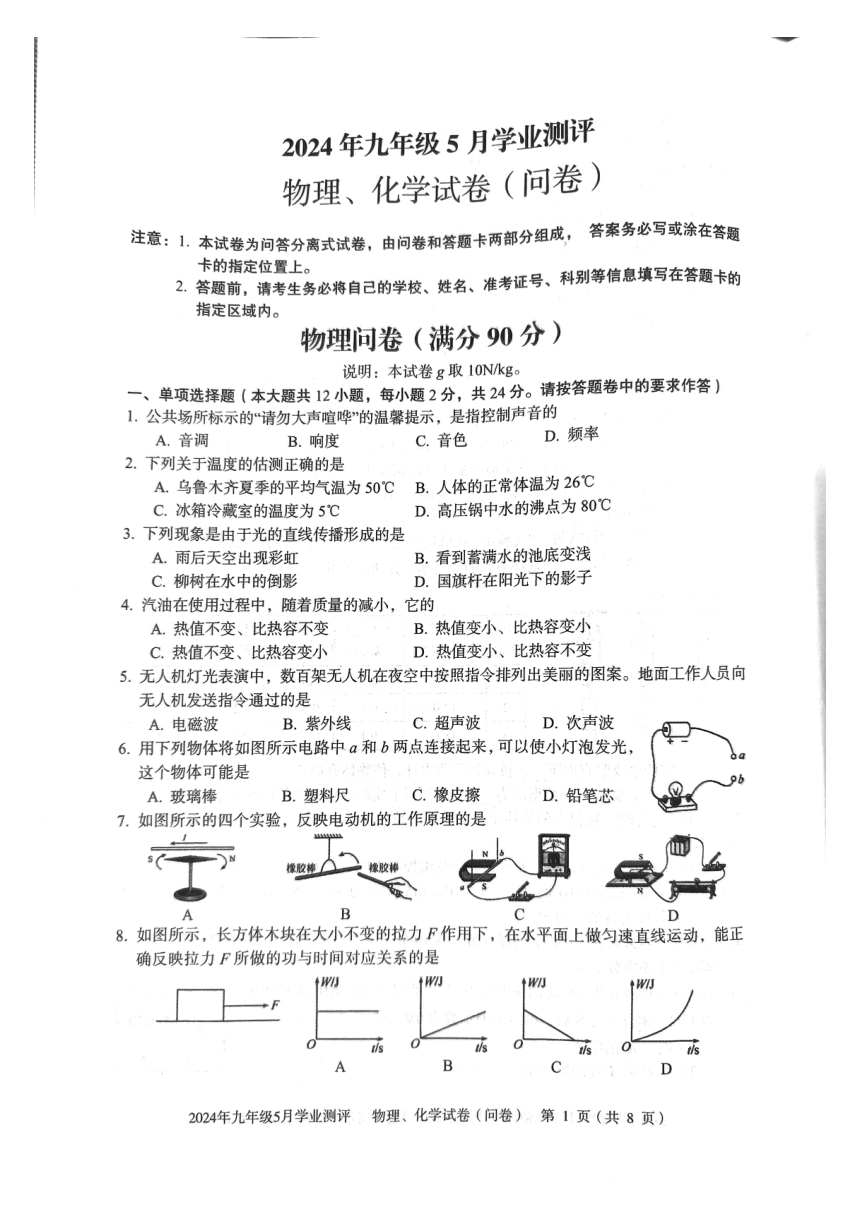 2024 年九年级 5 月学业测评
物理、化学试卷（问卷）
注意：1. 本试卷为问答分离式试卷，由问卷和答题卡两部分组成， 答案务必写或涂在答题
卡的指定位置上。
2. 答题前，请考生务必将自己的学校、姓名、准考证号、科别等信息填写在答题卡的
指定区域内。
物理问卷（满分 90 分）
说明：本试卷 g 取 10N/kg。
一、单项选择题（本大题共 12 小题，每小题 2 分，共 24 分。请按答题卷中的要求作答）
1. 公共场所标示的“请勿大声喧哗”的温馨提示，是指控制声音的
A. 音调 B. 响度 C. 音色 D. 频率
2. 下列关于温度的估测正确的是
A. 乌鲁木齐夏季的平均气温为 50℃ B. 人体的正常体温为 26℃
C. 冰箱冷藏室的温度为 5℃ D. 高压锅中水的沸点为 80℃
3. 下列现象是由于光的直线传播形成的是
A. 雨后天空出现彩虹 B. 看到蓄满水的池底变浅
C. 柳树在水中的倒影 D. 国旗杆在阳光下的影子
4. 汽油在使用过程中，随着质量的减小，它的
A. 热值不变、比热容不变 B. 热值变小、比热容变小
C. 热值不变、比热容变小 D. 热值变小、比热容不变
5. 无人机灯光表演中，数百架无人机在夜空中按照指令排列出美丽的图案。地面工作人员向
无人机发送指令通过的是
A. 电磁波 B. 紫外线 C. 超声波 D. 次声波
6. 用下列物体将如图所示电路中 a 和 b 两点连接起来，可以使小灯泡发光，
这个物体可能是
+ − a b
A. 玻璃棒 B. 塑料尺 C. 橡皮擦 D. 铅笔芯
7. 如图所示的四个实验，反映电动机的工作原理的是
I S N 橡胶棒 橡胶棒 N b a S S N
A B C D
8. 如图所示，长方体木块在大小不变的拉力 F 作用下，在水平面上做匀速直线运动，能正
确反映拉力 F 所做的功与时间对应关系的是
F W/J W/J W/J W/J
O t/s O t/s O t/s O t/s
A B C D
2024年九年级5月学业测评 物理、化学试卷（问卷） 第 1 页（共 8 页）